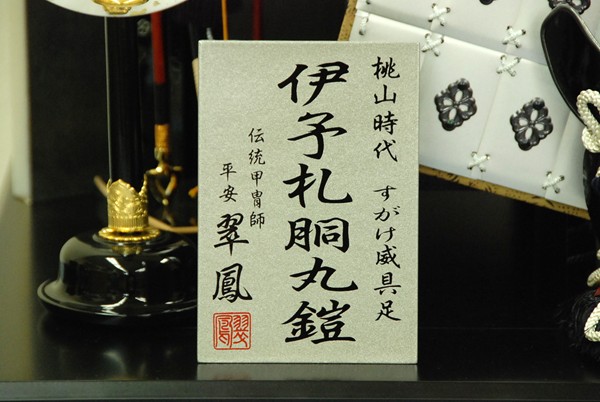 桃山時代　すがけ威具足
伊予札胴丸鎧
伝統甲冑師
平安　翠鳳